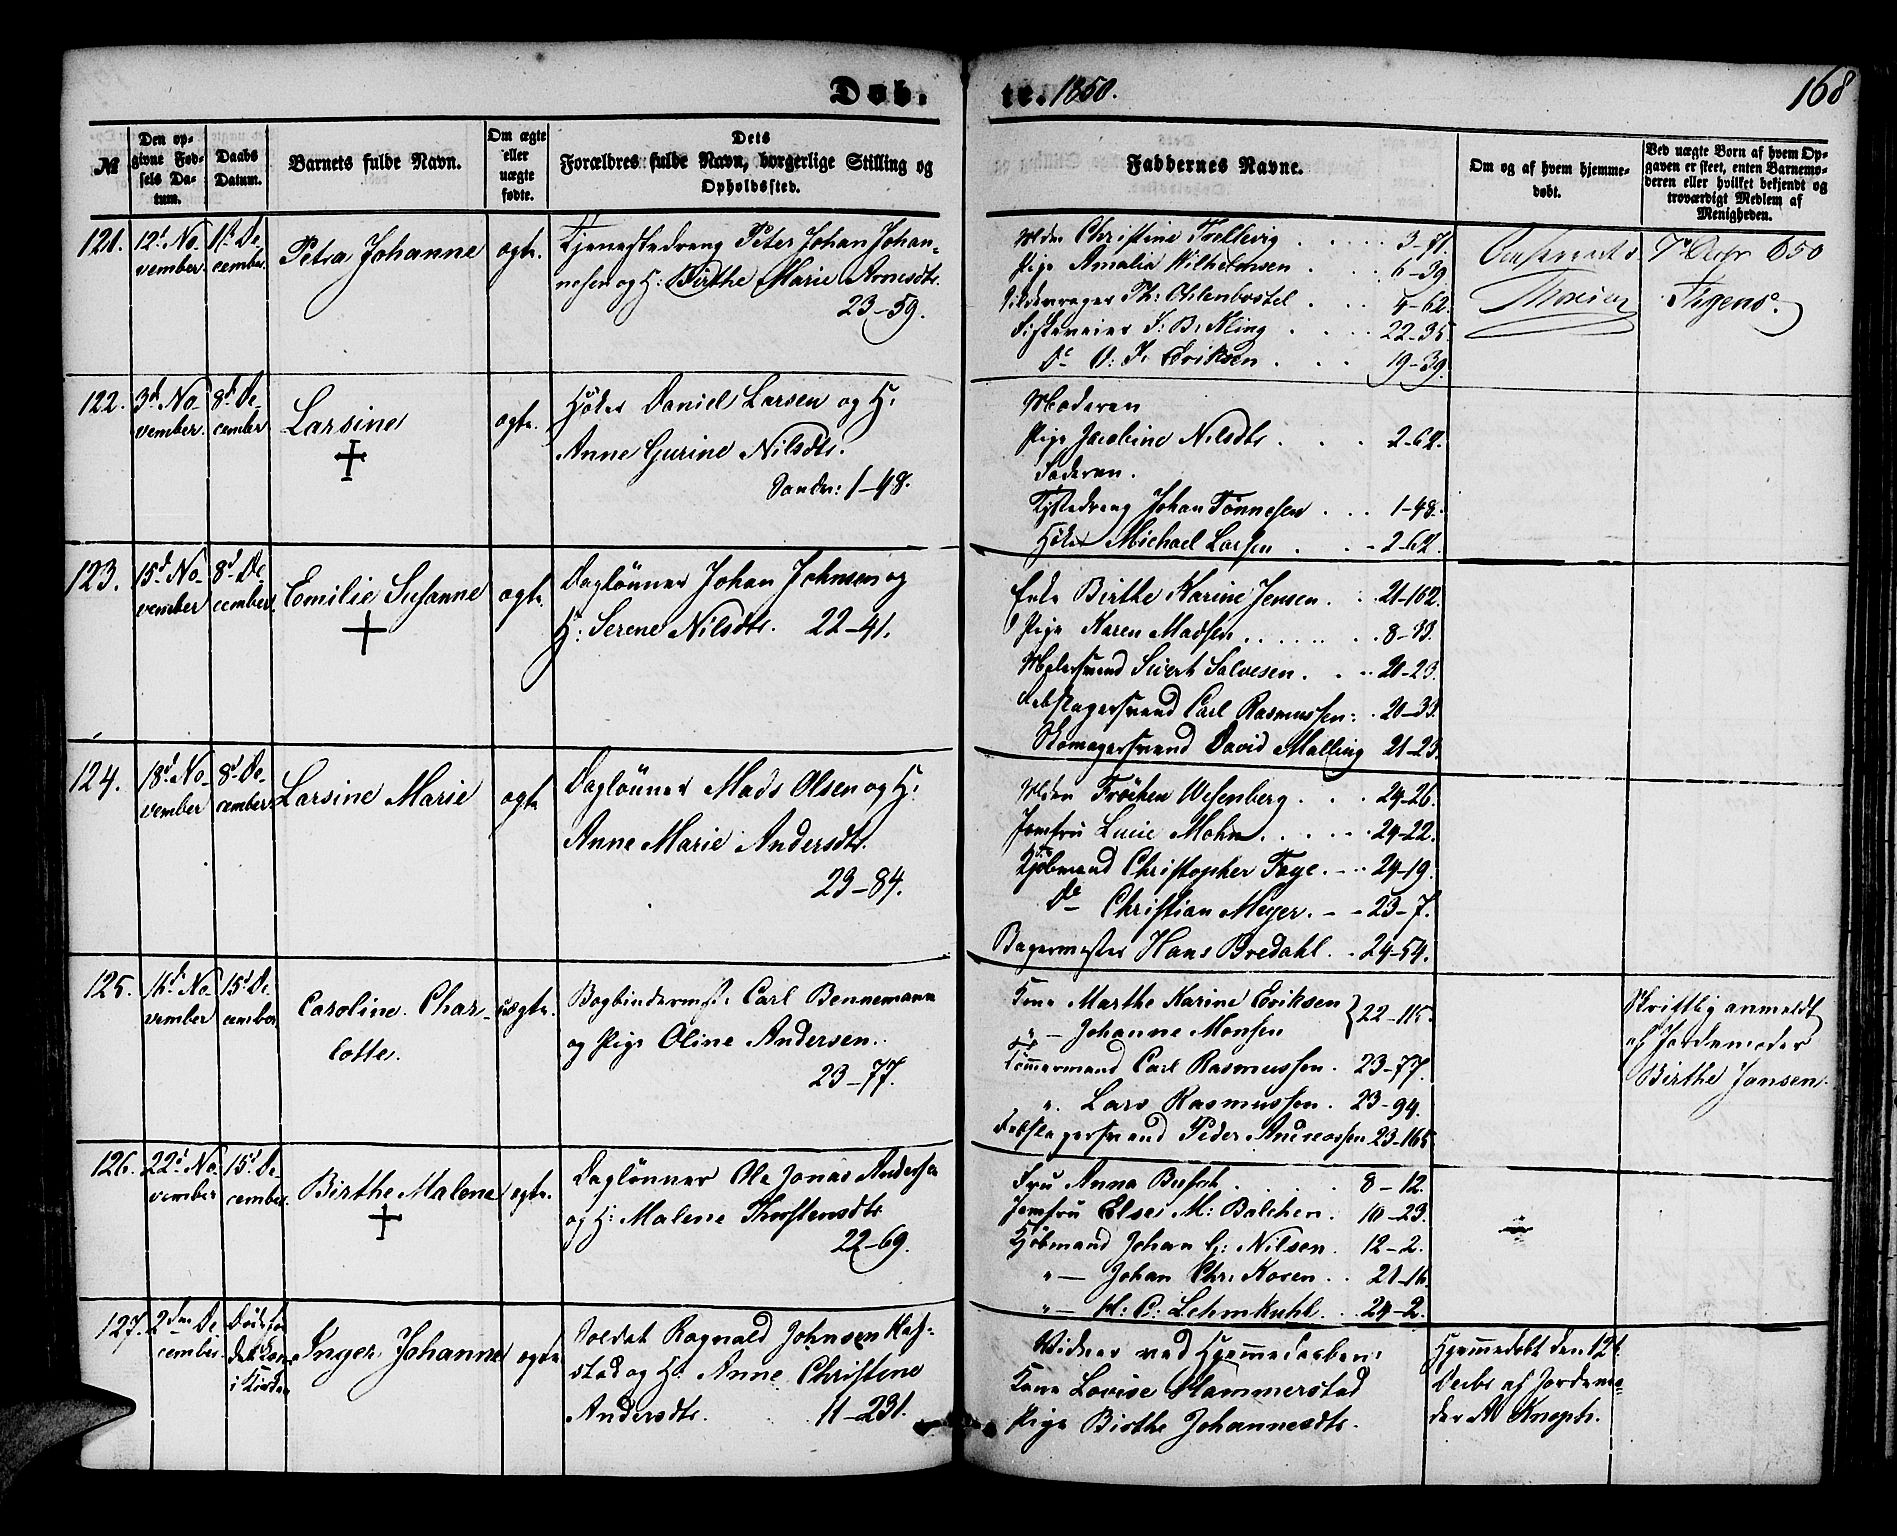 Døb-
te. 1850.
168
№
Den op-
givne Fød-
sels Da-
tum.
Daabs
Datum.
Barnets fulde Navn.
Om ægte
eller
uægte
fødte.
Dets
Forældres fulde Navn, borgerlige Stilling og
Opholdssted.
Faddernes Navne.
Om og af hvem hjemme-
døbt.
Ved uægte Børn af hvem Op-
gaven er skeet, enten Barnemo-
deren eller hvilket bekjendt og
troværdigt Medlem af
Menigheden.
121. 12t No-
vember. 1st De-
cember. Petra Johanne ægte. Tjenestedreng Peter Johan Johan-
nesen og H: Birthe Marie Arnesdtr.
23-59.
Mdm Christine Tvellevig 3-71.
Pige Amalia Wilhelmsen 6-39
Th: Ohlenbostel 4-62.
J: B: Kling 22-35.
Do O: J: Eriksen 19-39.
122. 3d No-
vember. 8d De-
cember Larsine ægte. Høker Daniel Larsen og H:
Anne Gurine Nilsdtr.
Sandv: 1-48.
Moderen
Pige Jacobine Nilsdtr. 2-62.
Faderen.
Johan Tønnesen 1-48.
Høker Michael Larsen 2-62.
123. 15d No-
vember 8d De-
cember. Emilie Susanne ægte. Daglønner Johan Johnsen og
H: Serene Nilsdtr. 22-41.
Enke Birthe Karine Jensen. 21-162.
Pige Karen Madsen 8-33.
Sivert Salvesen. 20-23.
Rebslagersvend Carl Rasmussen: 20-33.
Skomagersvend David Malling 21-23
124. 18d No-
vember 8d De-
cember Larsine Marie ægte Daglønner Mads Olsen og H:
Anne Marie Andersdtr.
23-84.
Mdm Frøchen Wesenberg. 24-26.
Jomfru Lucie Mohn 24-22.
Kjøbmand Christopher Faye. 24-19.
Do Christian Meyer. 23-7.
Bagermester Hans Bredahl. 24-54.
125. 16d No-
vember 15d De-
cember Caroline Char-
lotte. uægte. Bogbindermst. Carl Bennemann
og Pige Oline Andersen.
23-77.
Kone Marthe Karine Eriksen
" - Johanne Monsen } 22-115.
Tømmermand Carl Rasmussen. 23-77.
" Lars Rasmussen. 23-94.
Rebslagersvend Peder Andreassen 23-165
Skriftlig anmeldt
af Jordemoder
Birthe Jansen.
126. 22d No-
vember 15d De-
cember. Birthe Malene ægte. Daglønner Ole Jonas Andersen
og H: Malene Thorstensdtr.
22-69.
Fru Anna Busch 8-12.
Jomfru Elses M: Balchen. 10-23.
Kjøbmand Johan G: Nilsen. 12-2.
" - Johan Chr: Koren. 21-16.
" - H: C: Lehmkuhl. 24-2.
127. 2den De-
cember. Døde før
det kom
i Kirken Inger Johanne ægte Soldat Rognald Johnsen Haf-
stad og H: Anne Christene
Andersdtr. 11-231.
Vidner ved Hjemmedaaben:
Kone Lovise Hammerstad
Pige Birthe Johannesdtr.
Hjemmedøbt den 12t
Decbr af Jordemo-
der A Knoph.